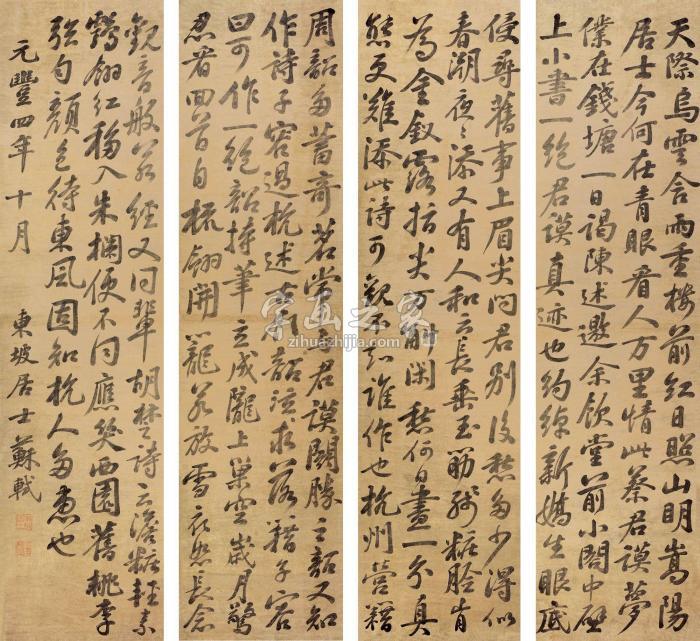 天際烏雲含雨重樓前紅日照山明嵩陽
居士今何在青眼看人万里情此蔡君謨夢
僕在錢塘一日謁陳述邀余飲堂前小閣中壁
上小書一絕君謨真迹也約綽新嬌生眼底
侵尋舊事上眉尖問君別後愁多少得似
春潮夜々添又有人和云長垂玉筯殘粧臉肯
為金釵露指尖万斛閑愁何日盡一分真
態更難添此詩可觀不知誰作也杭州營籍
周韶多蓄奇茗常與君謨鬪勝之韶又知
作詩子容過杭述古飲韶泣求落籍子容
曰可作一絕韶持筆立成隴上巢空歲月驚
忍看回首自梳翎開籠若放雪衣女長念
觀音般若經又同輩胡楚詩云澹粧輕素
鶴翎紅移入朱欄便不同應笑西園舊桃李
強勻顏色待東風固知杭人多惠也
元豐四年十月 東坡居士蘇軾
字画之家
zihuazhijia.com